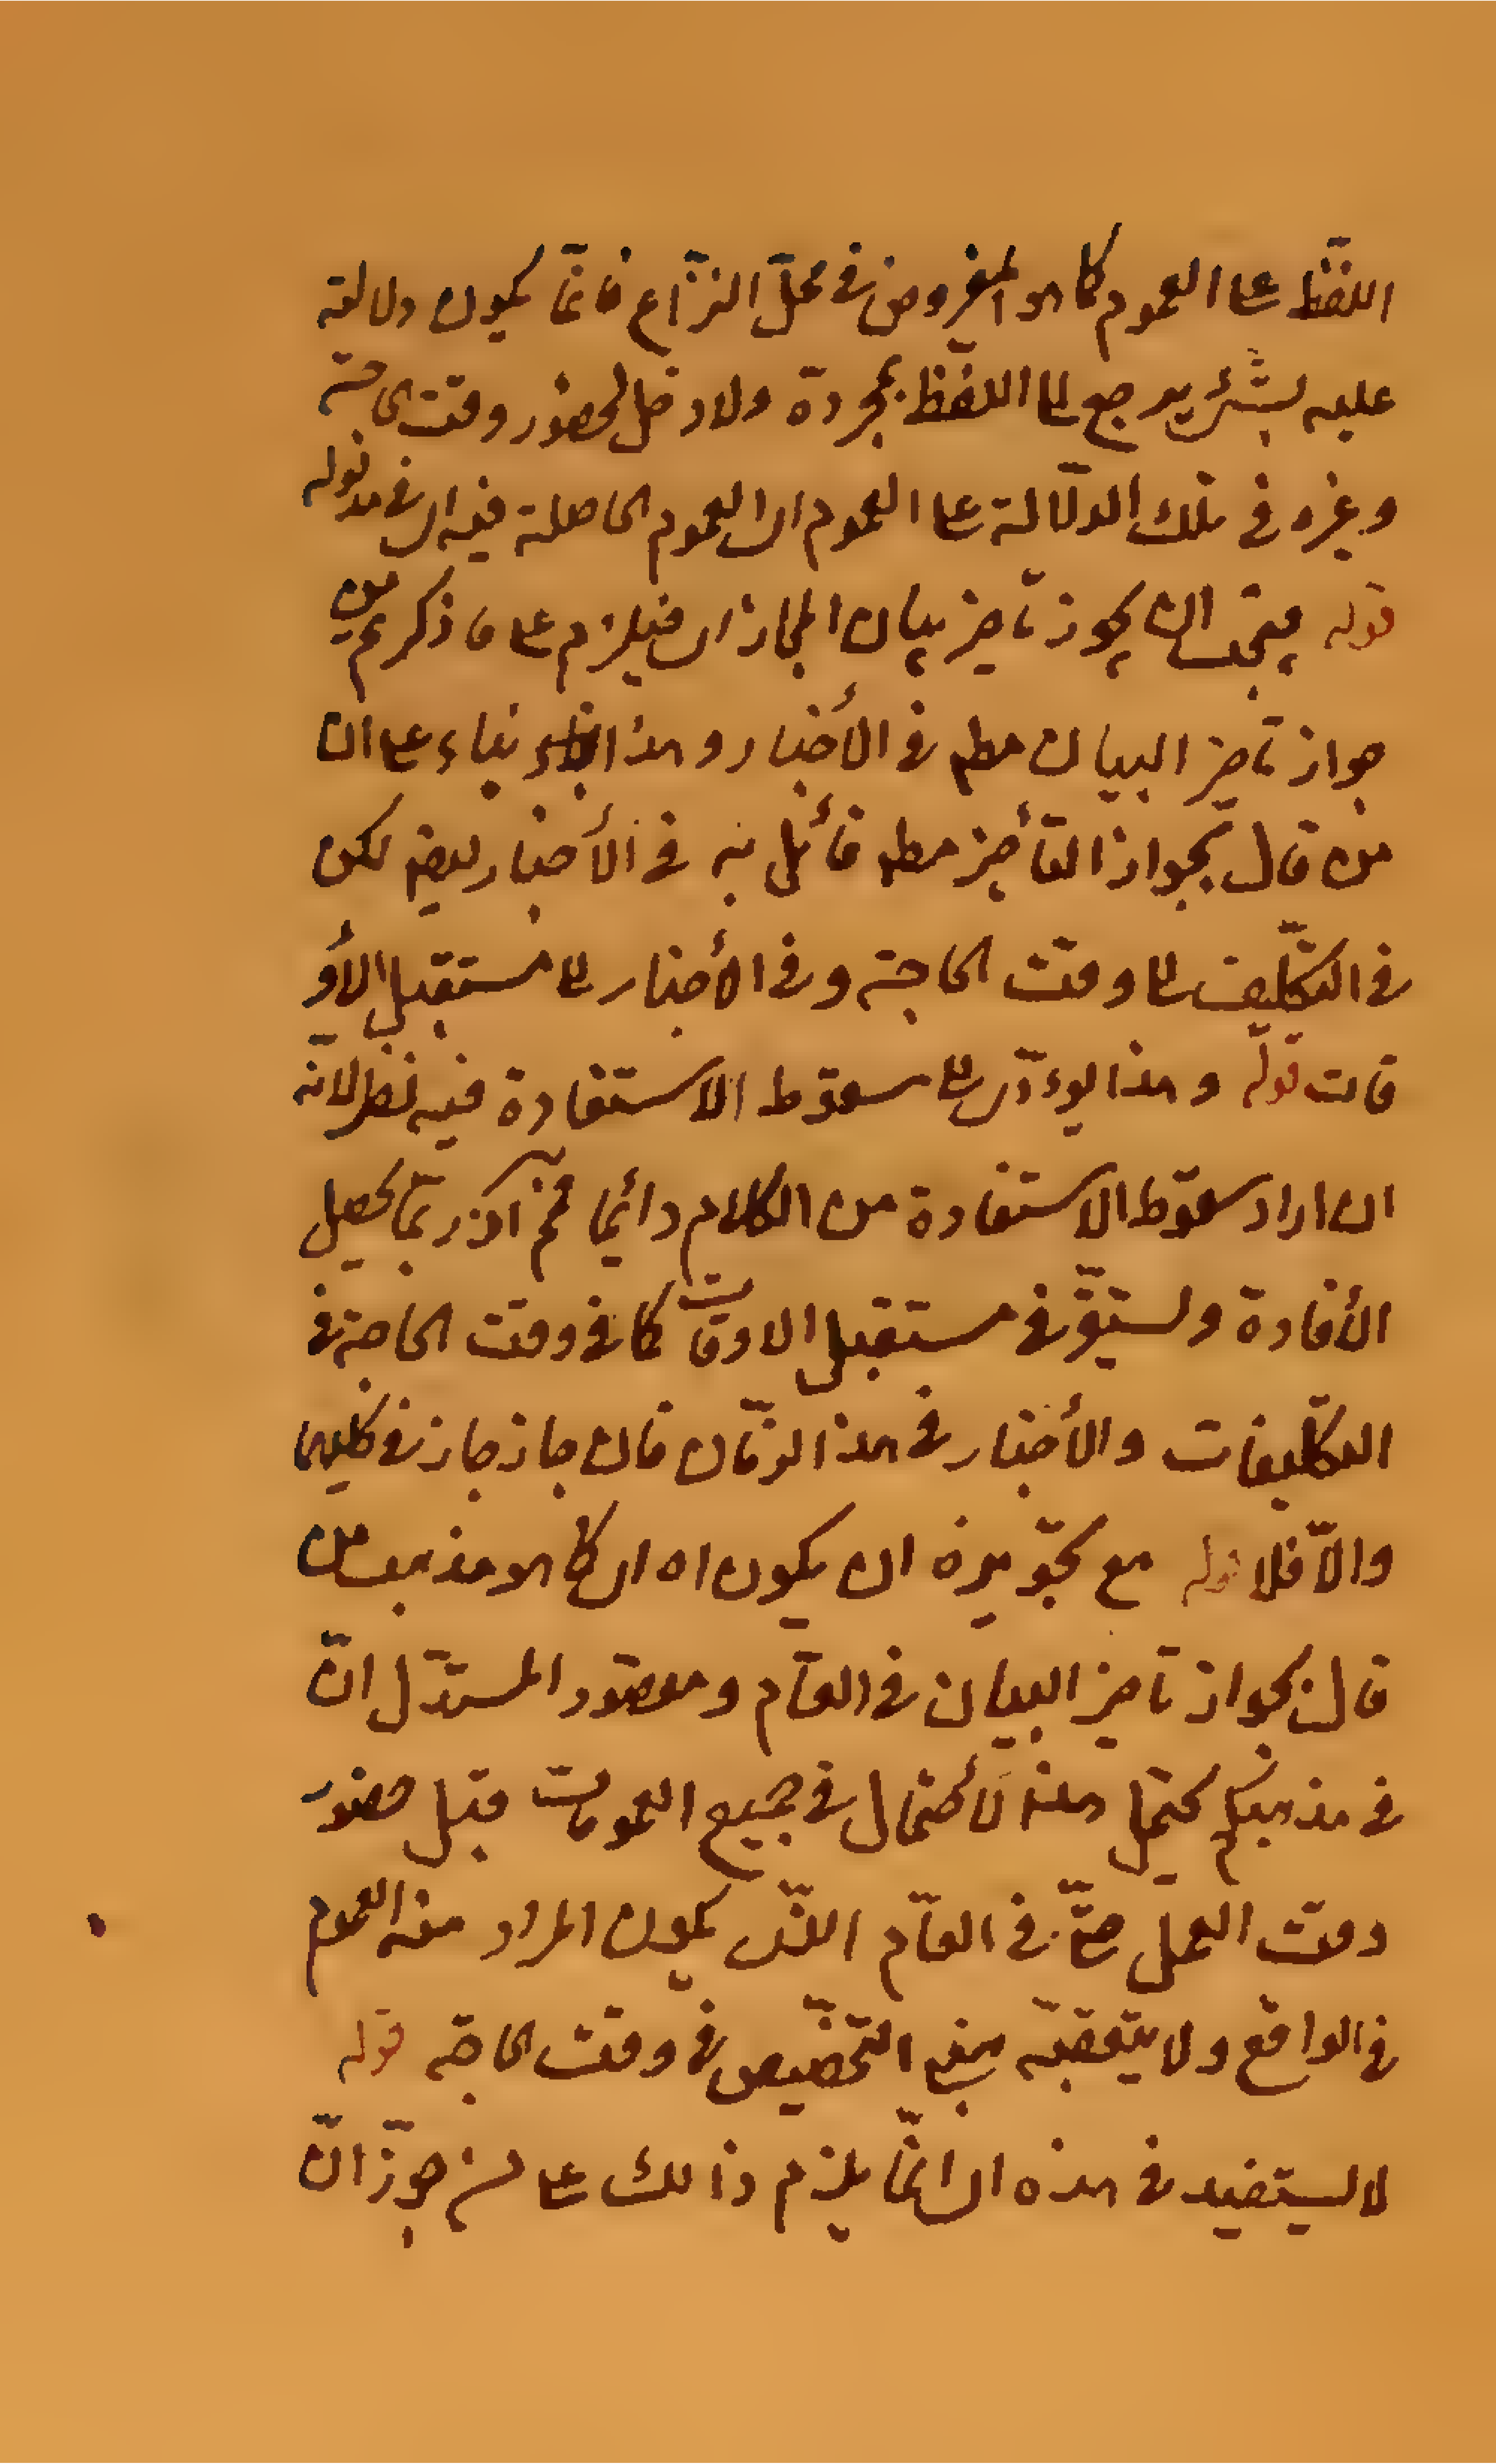 اللفظ على العموم كما هو المفروض في محلّ النزّاع فانمّا يكون دلالته
عليه لشئ يرجع الى اللفّظ بمجردة ولا دخل لحضور وقت الحاجة
وغيره في تلك الدلّالة على العموم اى العموم الحاصلة فيه اى في مدلوله
قوله فيجب ان يجوز تاخير بيان المجاز اى فيلزم على ما ذكرتم من
جواز تاخير البيان مطم في الأخبار وهذا بناء على ان
من قال بجواز التأخير مطم قائل به في الأخبار ايضم لكن
في التكّليف الى وقت الحاجة وفي الأخبار الى مستقبل الأو
قات قوله وهذا يودّى الى سقوط الاستفادة فيه نظر لانّه
ان اراد سقوط الاستفادة من الكلام دائما فمم اذ ربمّا يحصل
الأفادة ويستقّر في مستقبل الاوقات كما في وقت الحاجة في
التكّليفات والأخبار في هذا الزمّان فان جاز جاز في كليهما
والاّ فلا قوله مع تجوّيزه ان يكون اه اى كما هو مذهب من
قال بجواز تاخير البيان في العاّم ومقصود المستدّل انّ
في مذهبكم يحتمل هذا لأحتمال في جميع العمومات قبل حضور
وقت العمل حتّى في العاّم الذّى يكون المراد منه العموم
في الواقع ولا يتعقّبه التخّصيص في وقت الحاجة قوله
لا يستفيد في هذه اى انمّا يلزم ذالك على من جوّز انّ